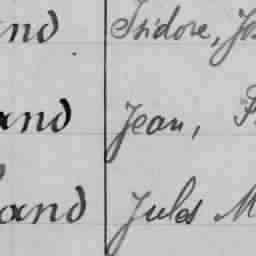 and Isidore, Jo
and Jean, F
and Jules M